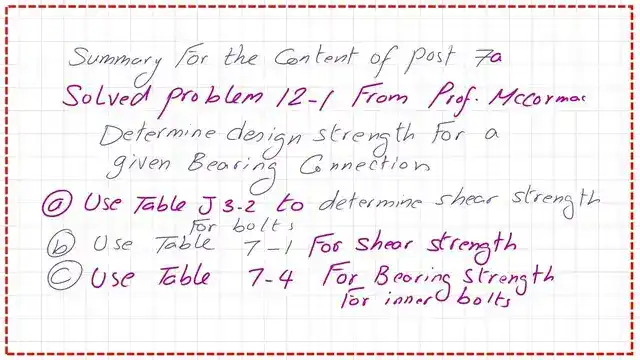 Summary For the Content of post 7a
Solved problem 12-1 From Prof. McCormac
Determine design strength For a
given Bearing Connection
a Use Table J 3-2 to determine shear strength
For bolts
b Use Table 7-1 For shear strength
c Use Table 7-4 For Bearing strength
For inner bolts